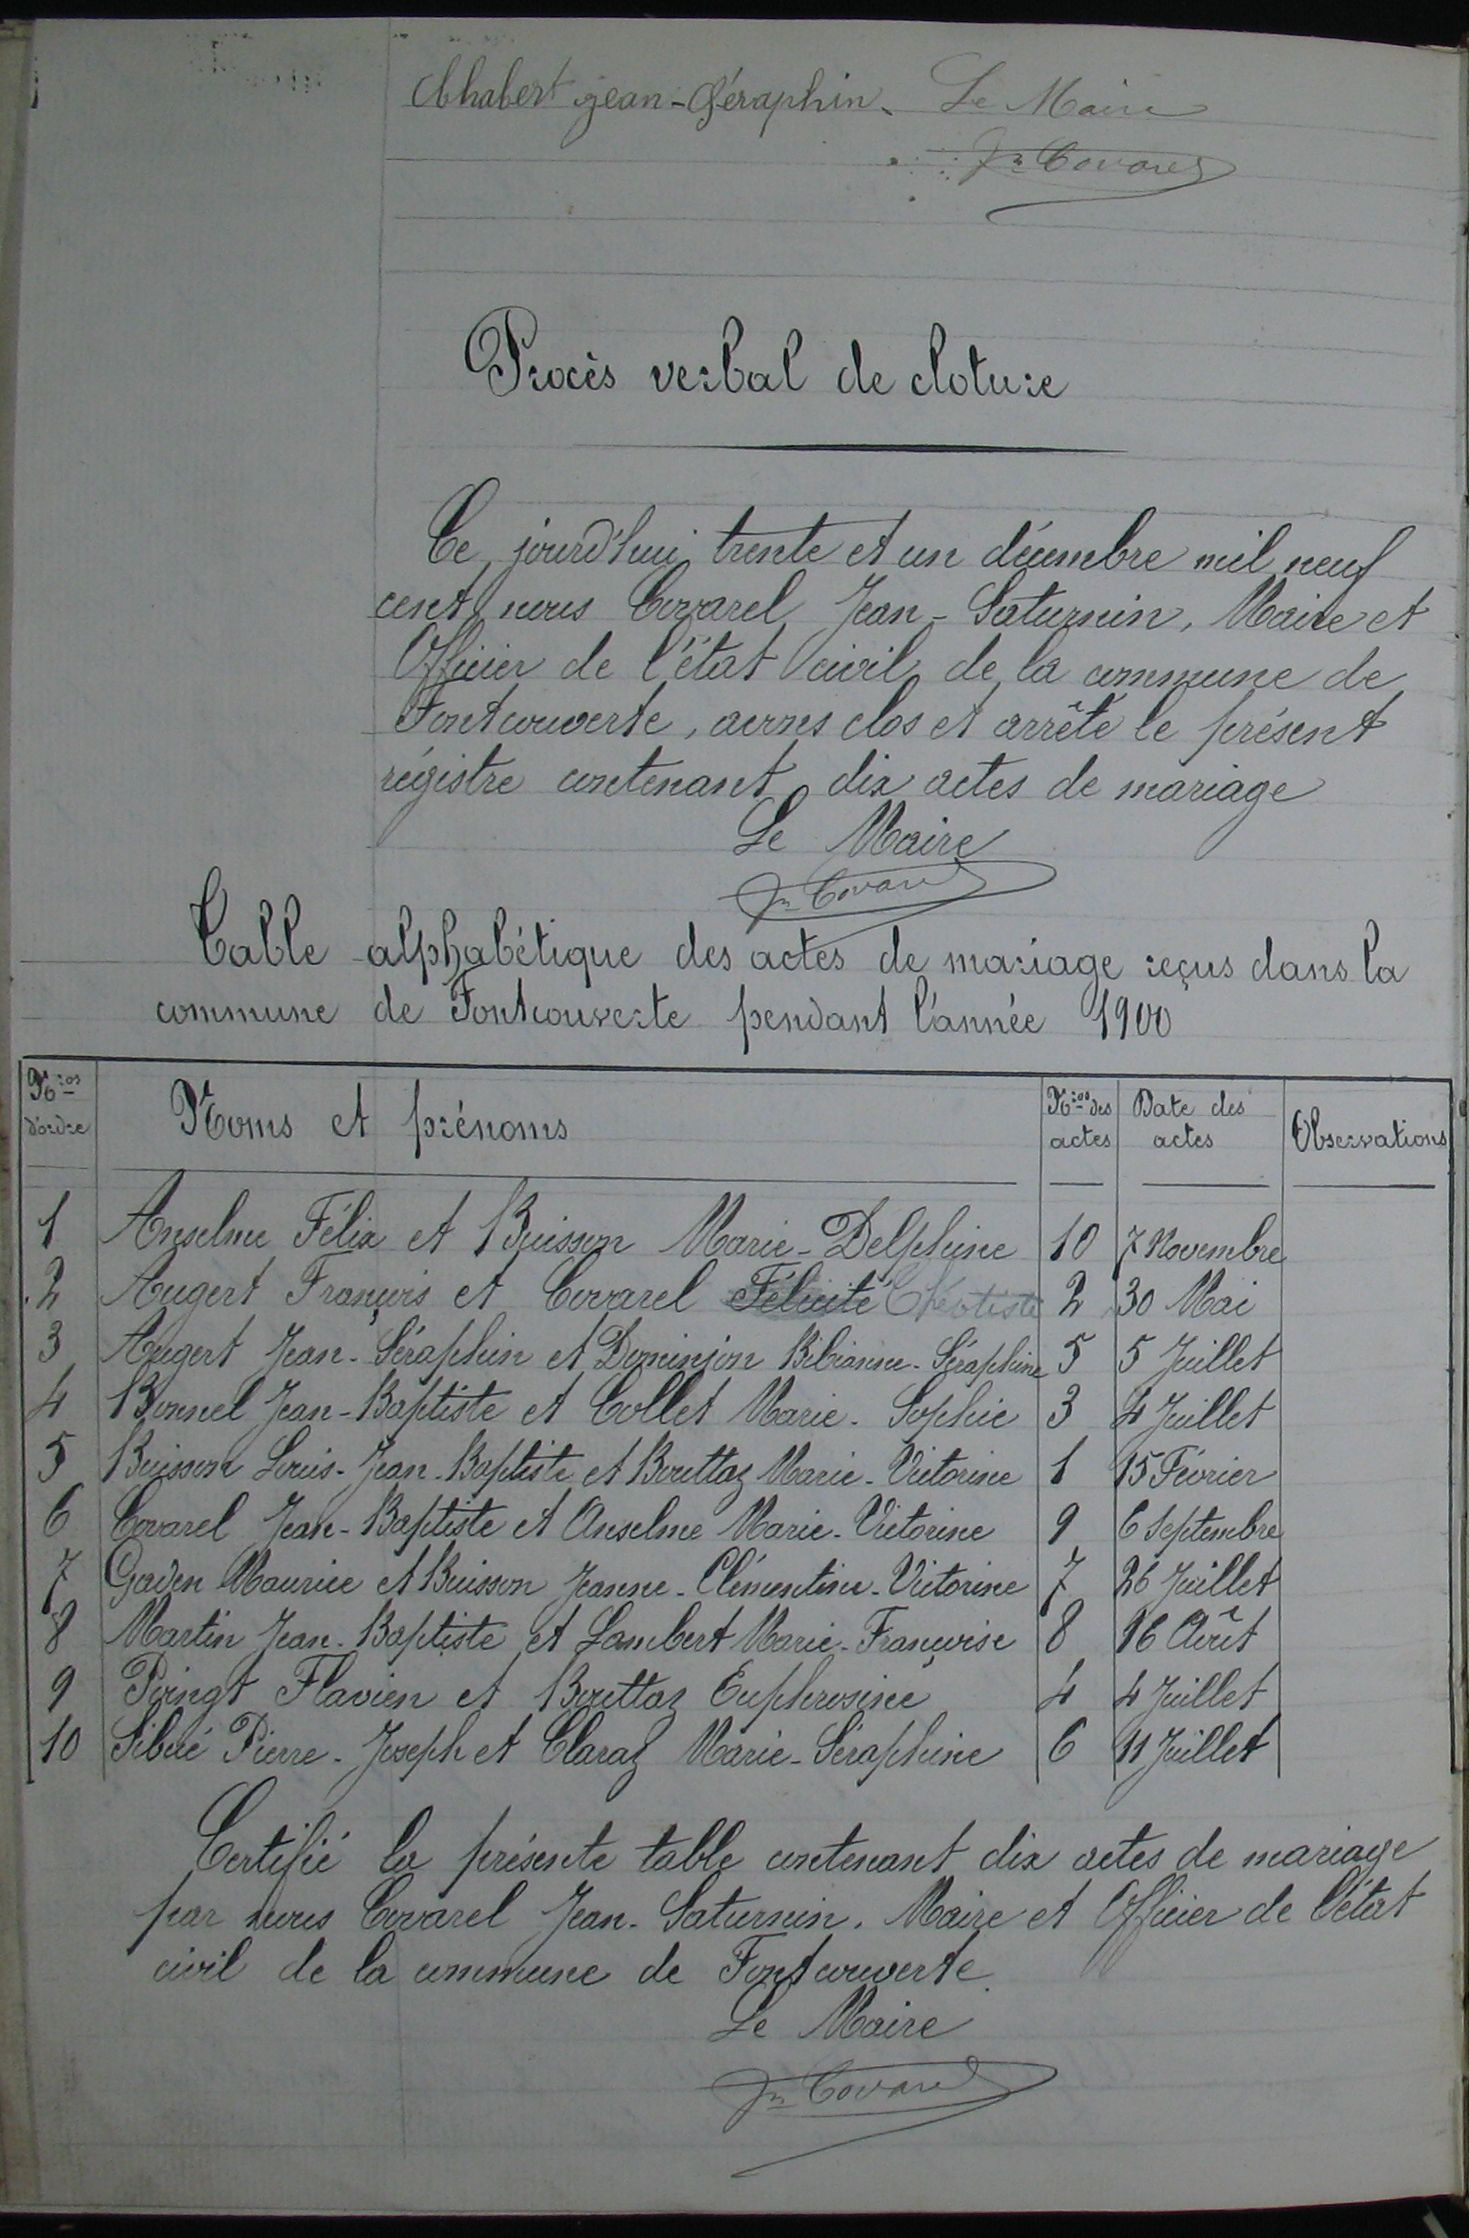 Chabert Jean-Séraphin. Le Maire
Jn Covarel
Procès verbal de cloture
Ce jourd'hui trente et un décembre mil neuf
cent, nous Covarel Jean-Saturnin, Maire et
Officier de l'état civil de la commune de
Fontcouverte, avons clos et arrêté le présent
régistre contenant dix actes de mariage
Le Maire
Jn Covarel
Table alphabétique des actes de mariage reçus dans la
commune de Fontcouverte pendant l'année 1900
Nros d'ordre Noms et prénoms Nros des actes Date des actes Observations
1 Anselme Félix et Buisson Marie-Delphine 10 7 Novembre
2 Augert François et Covarel Félicité 2 30 Mai
3 Augert Jean-Séraphin et Dominjon Bibianne-Séraphine 5 5 Juillet
4 Bonnel Jean-Baptiste et Collet Marie-Sophie 3 4 Juillet
5 Buisson Louis-Jean-Baptiste et Bouttaz Marie-Victorine 1 15 Février
6 Covarel Jean-Baptiste et Anselme Marie-Victorine 9 6 Septembre
7 Gaden Maurice et Buisson Jeanne-Clémentine-Victorine 7 26 Juillet
8 Martin Jean-Baptiste et Lambert Marie-Françoise 8 16 Août
9 Poingt Flavien et Bouttaz Euphrosine 4 4 Juillet
10 Sibué Pierre-Joseph et Claraz Marie-Séraphine 6 11 Juillet
Certifié la présente table contenant dix actes de mariage
par nous Covarel Jean-Saturnin, Maire et Officier de l'état
civil de la commune de Fontcouverte.
Le Maire
Jn Covarel